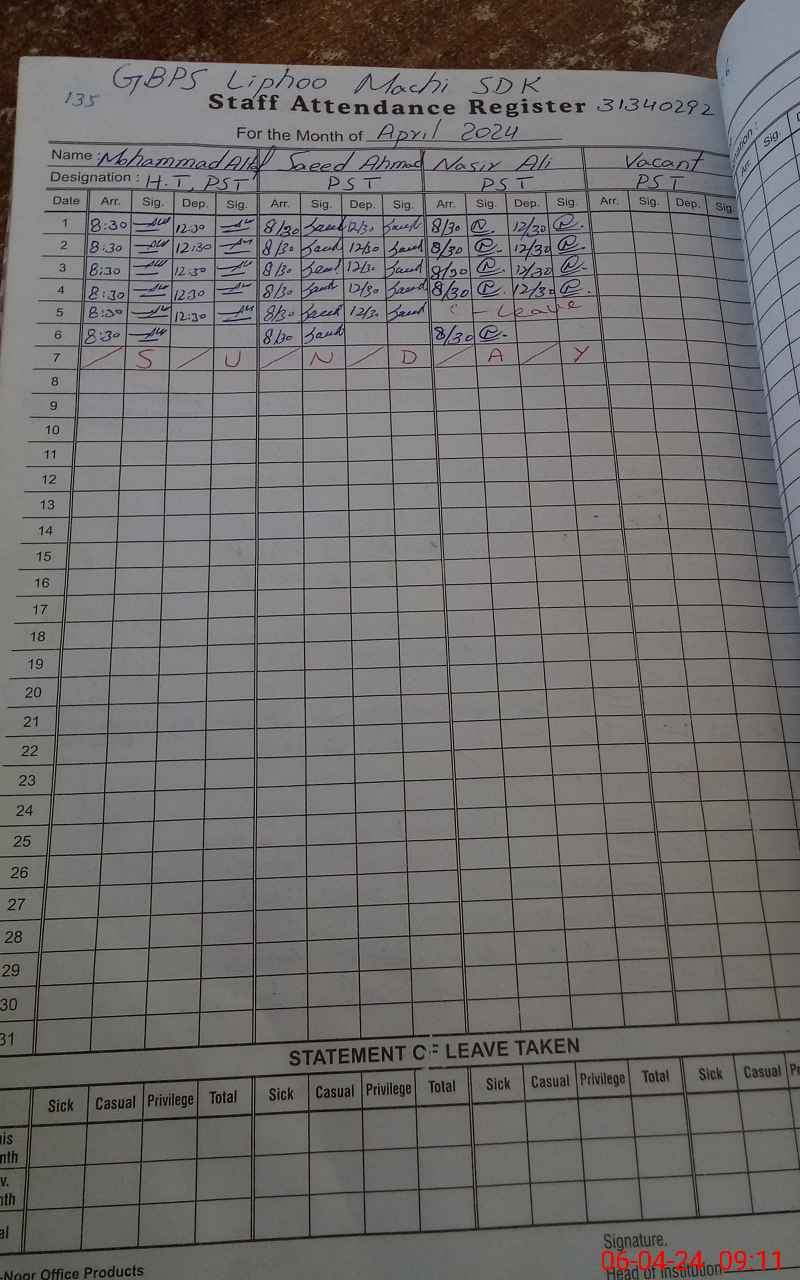 GBPS Liphoo Machi SDK
135
Staff Attendance Register 31340292
For the Month of April 2024
Name : Mohammad Saeed Ahmad Nasir Ali Vacant
Designation : H.T, PST PST PST PST
Date Arr. Sig. Dep. Sig. Arr. Sig. Dep. Sig. Arr. Sig. Dep. Sig. Arr. Sig. Dep. Sig.
1 8:30 12:30 8/30 Saeed 12/30 Saeed 8/30 12/30
2 8:30 12:30 8/30 Saeed 12/30 Saeed 8/30 12/30
3 8:30 12:30 8/30 Saeed 12/30 Saeed 8/30 12/30
4 8:30 12:30 8/30 Saeed 12/30 Saeed 8/30 12/30
5 8:30 12:30 8/30 Saeed 12/30 Saeed - Leave
6 8:30 8/30 Saeed 8/30
7 S U N D A Y
8
9
10
11
12
13
14
15
16
17
18
19
20
21
22
23
24
25
26
27
28
29
30
31
STATEMENT OF LEAVE TAKEN
Sick Casual Privilege Total Sick Casual Privilege Total Sick Casual Privilege Total Sick Casual
-Noor Office Products
Signature.
Head of Institution
06-04-24 09:11